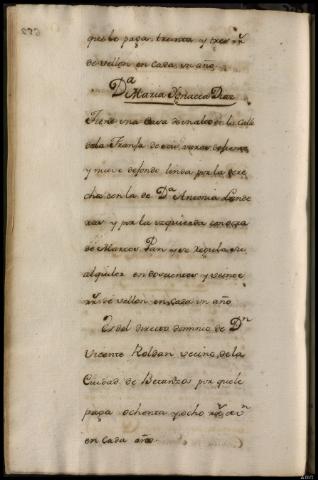 que le paga, treinta y tres rr.s
de vellon en cada un año.
D.a
Maria Ygnacia Diaz
Tiene una Casa de nalto de la Calle
dela Franja de seis varas de frente
y nueve de fondo linda por la dere
cha con la de D.a Antonia Lande
y por la izquierda con otra
de Marcos Pan y se regula su
alquiler en doscientos y veinte
rr.s de vellon en cada un año
Es del directo dominio de D.n
Vicente Roldan vecino de la
Ciudad de Betanzos por que le
paga ochenta y ocho rr.s de v.n
en cada año.